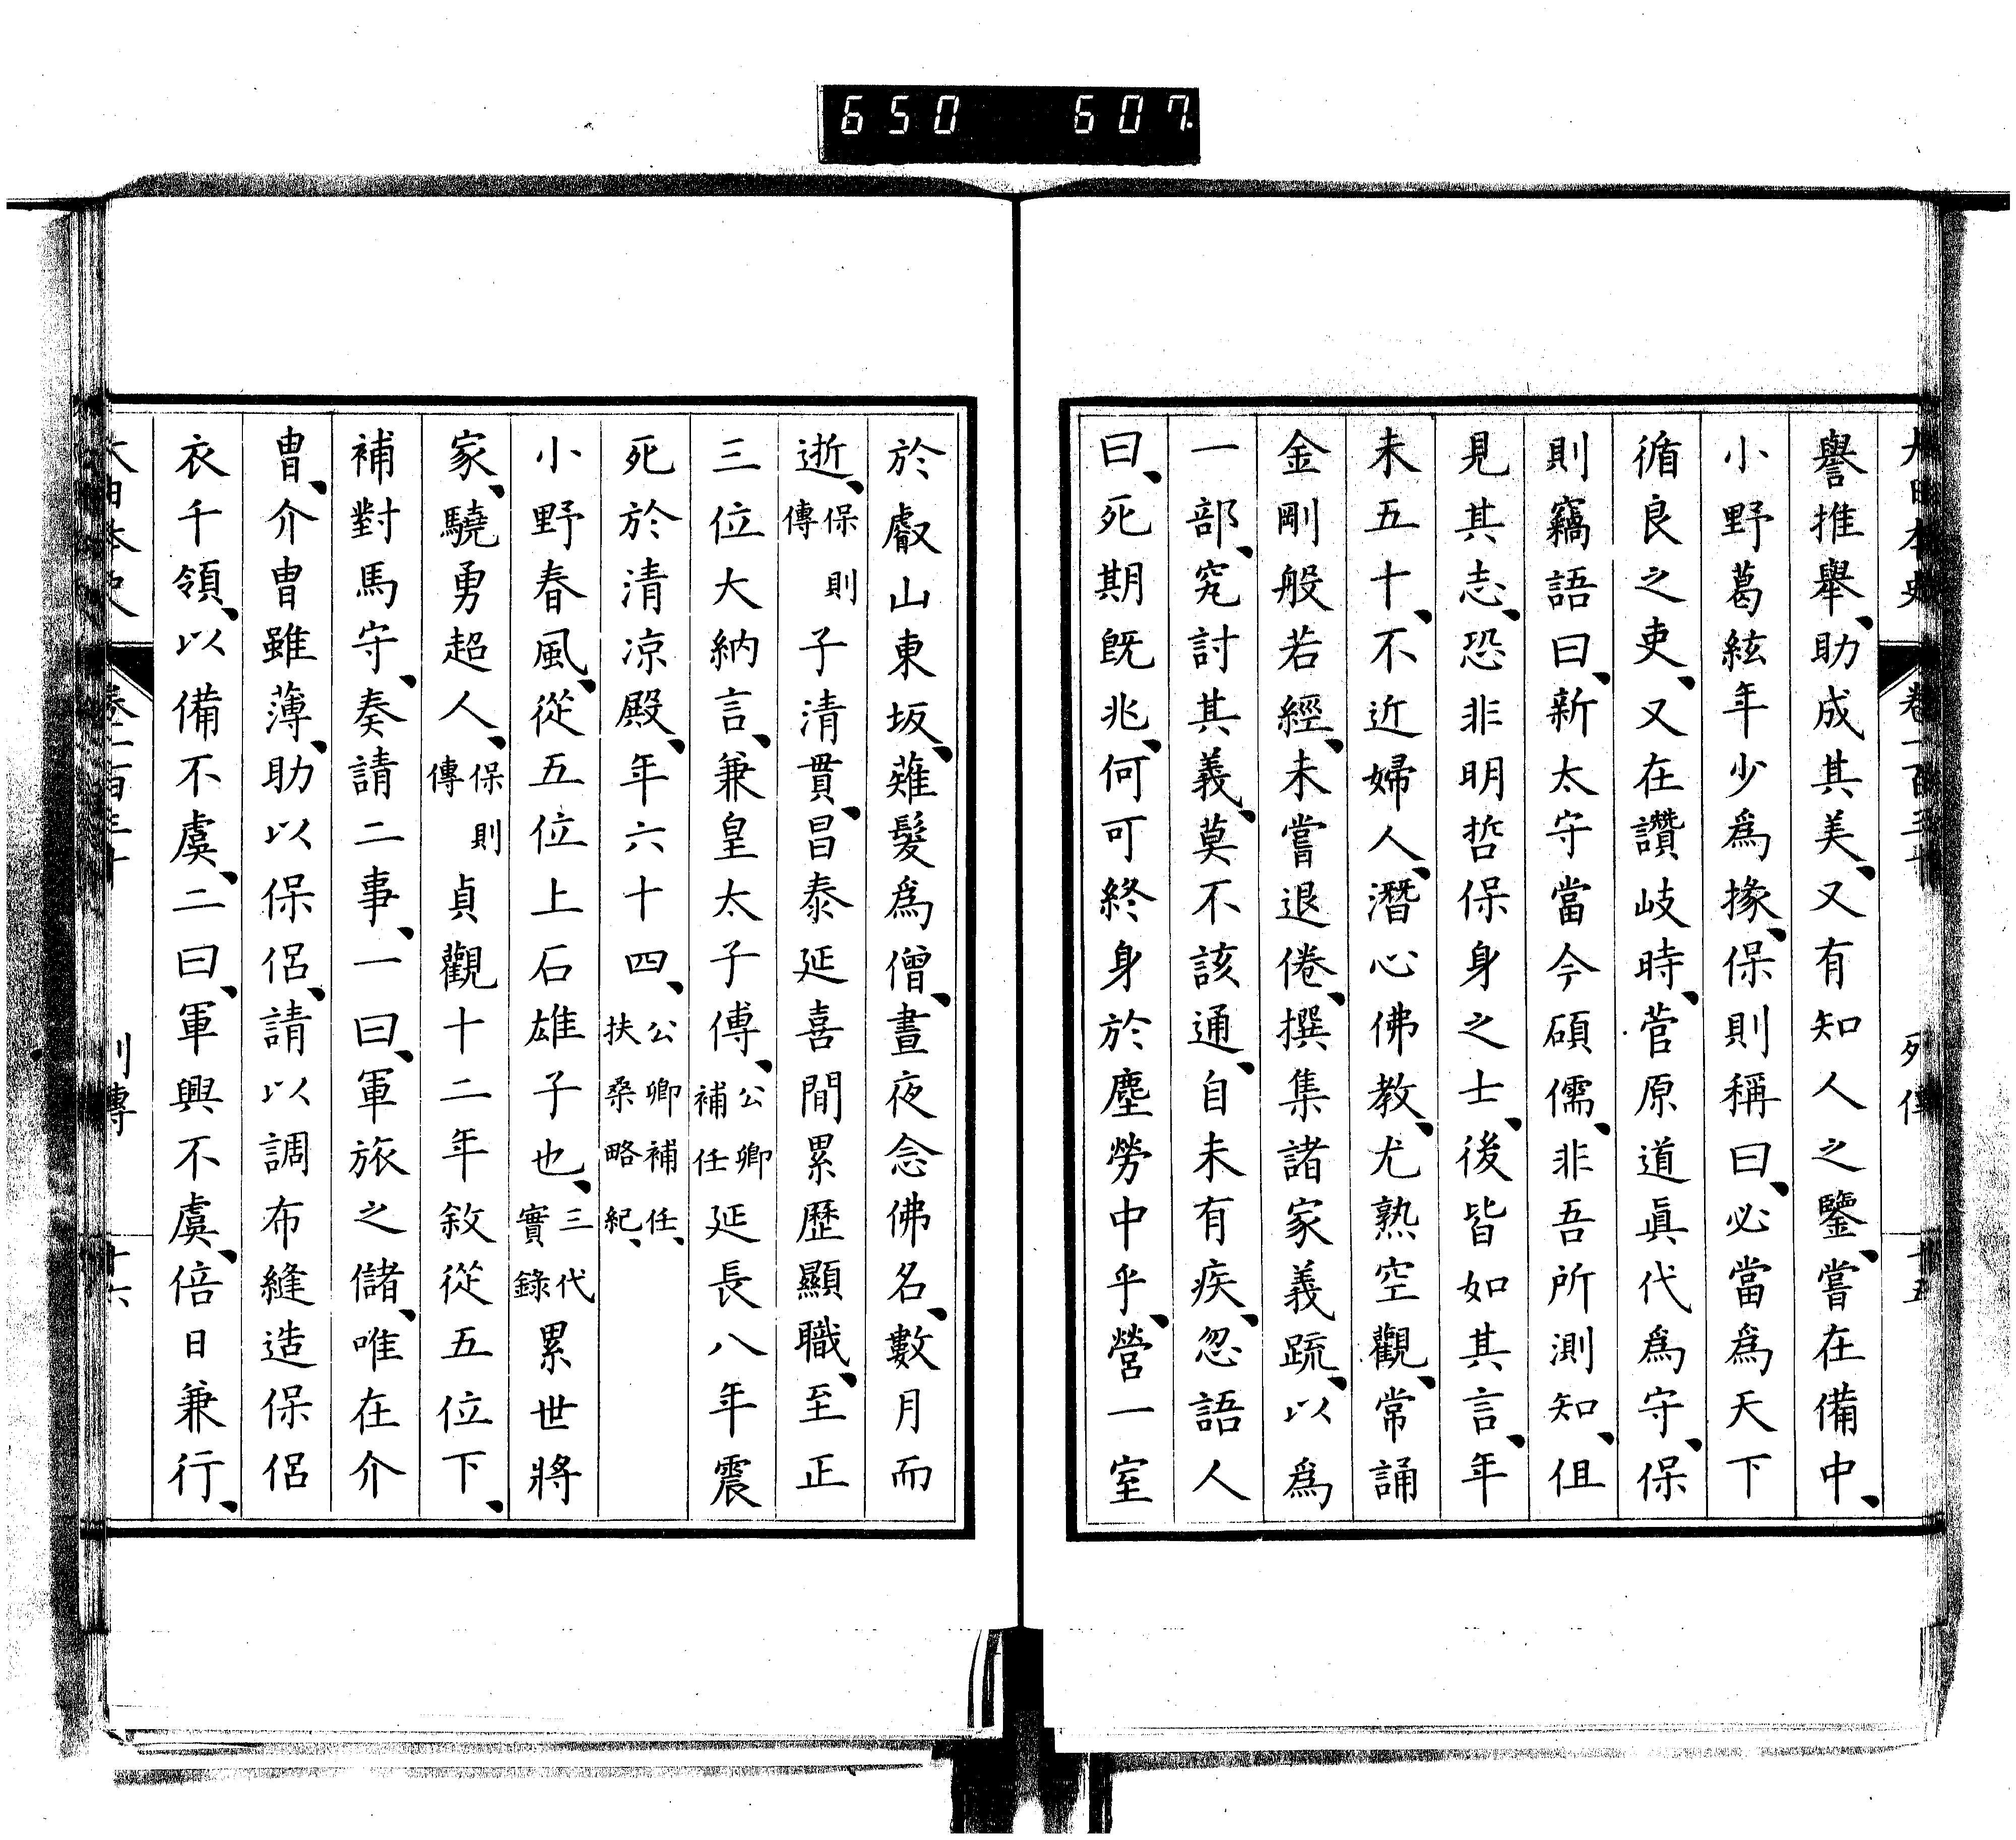 650 607
譽推舉、助成其美、又有知人之鑒、嘗在備中、
小野葛絃年少爲掾、保則稱曰、必當爲天下
循良之吏、又在讚岐時、菅原道眞代爲守、保
則竊語曰、新太守當今碩儒、非吾所測知、但
見其志、恐非明哲保身之士、後皆如其言、年
未五十、不近婦人、潛心佛教、尤熟空觀、常誦
金剛般若經、未嘗退倦、撰集諸家義疏、以爲
一部、究討其義、莫不該通、自未有疾、忽語人
曰、死期既兆、何可終身於塵勞中乎、營一室
於叡山東坂、薙髮爲僧、晝夜念佛名、數月而
逝、保則傳子清貫、昌泰延喜間累歷顯職、至正
三位大納言、兼皇太子傅、公卿補任延長八年震
死於清凉殿、年六十四、公卿補任、扶桑略紀、
小野春風、從五位上石雄子也、三代實錄累世將
家、驍勇超人、保則傳貞觀十二年敘從五位下、
補對馬守、奏請二事、一曰、軍旅之儲、唯在介
冑、介冑雖薄、助以保侶、請以調布縫造保侶
衣千領、以備不虞、二曰、軍興不虞、倍日兼行、